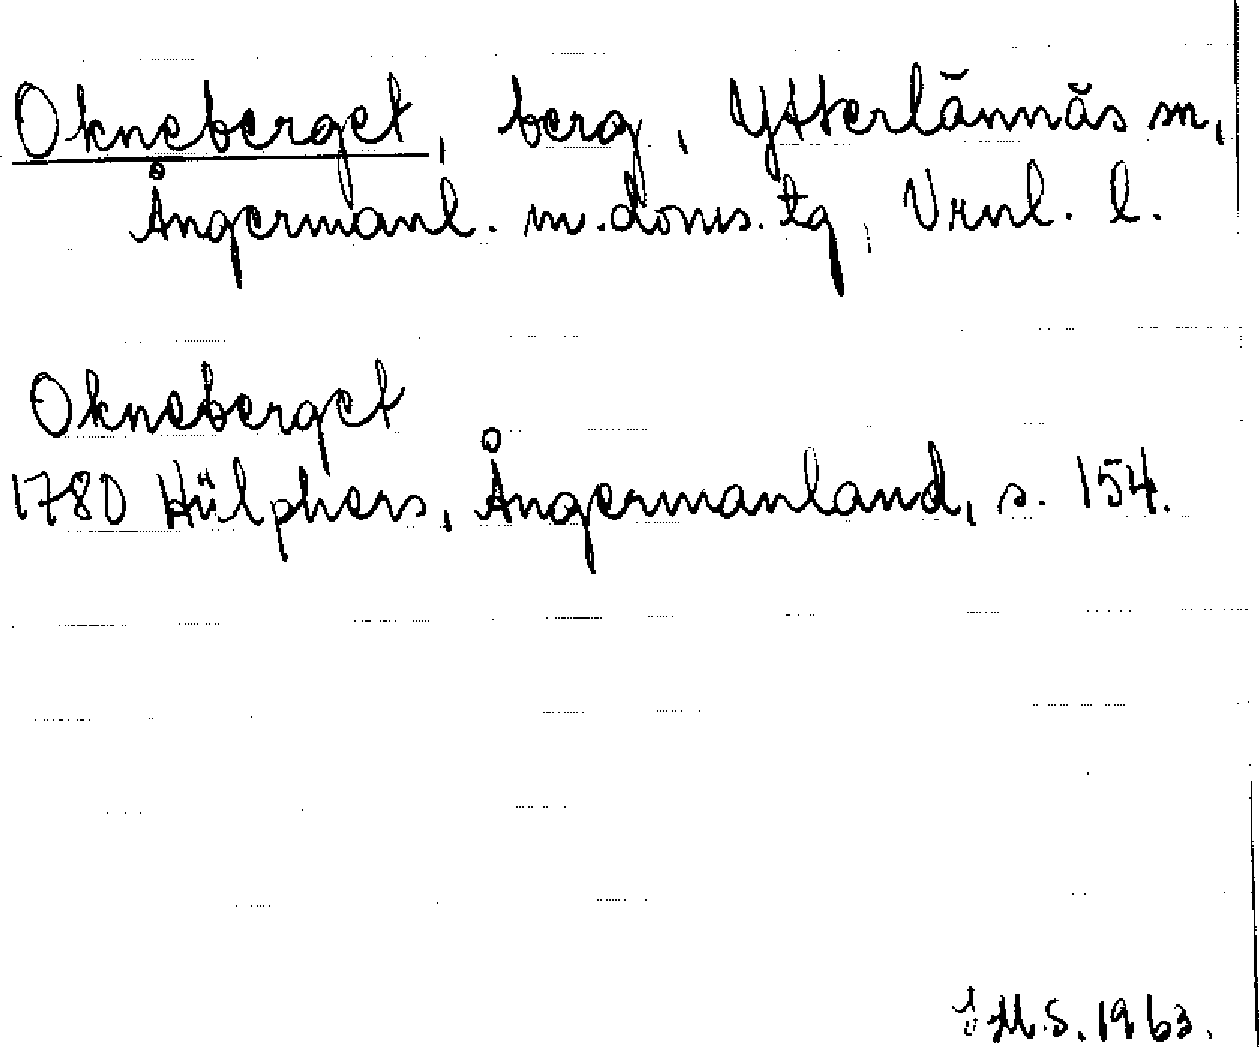 Okneberget, berg, Ytterlännäs sn,
Ångermanl. m.doms. tg, Vrnl. l.
Okneberget
1780 Hülphers, Ångermanland, s. 154.
M.S. 1963.